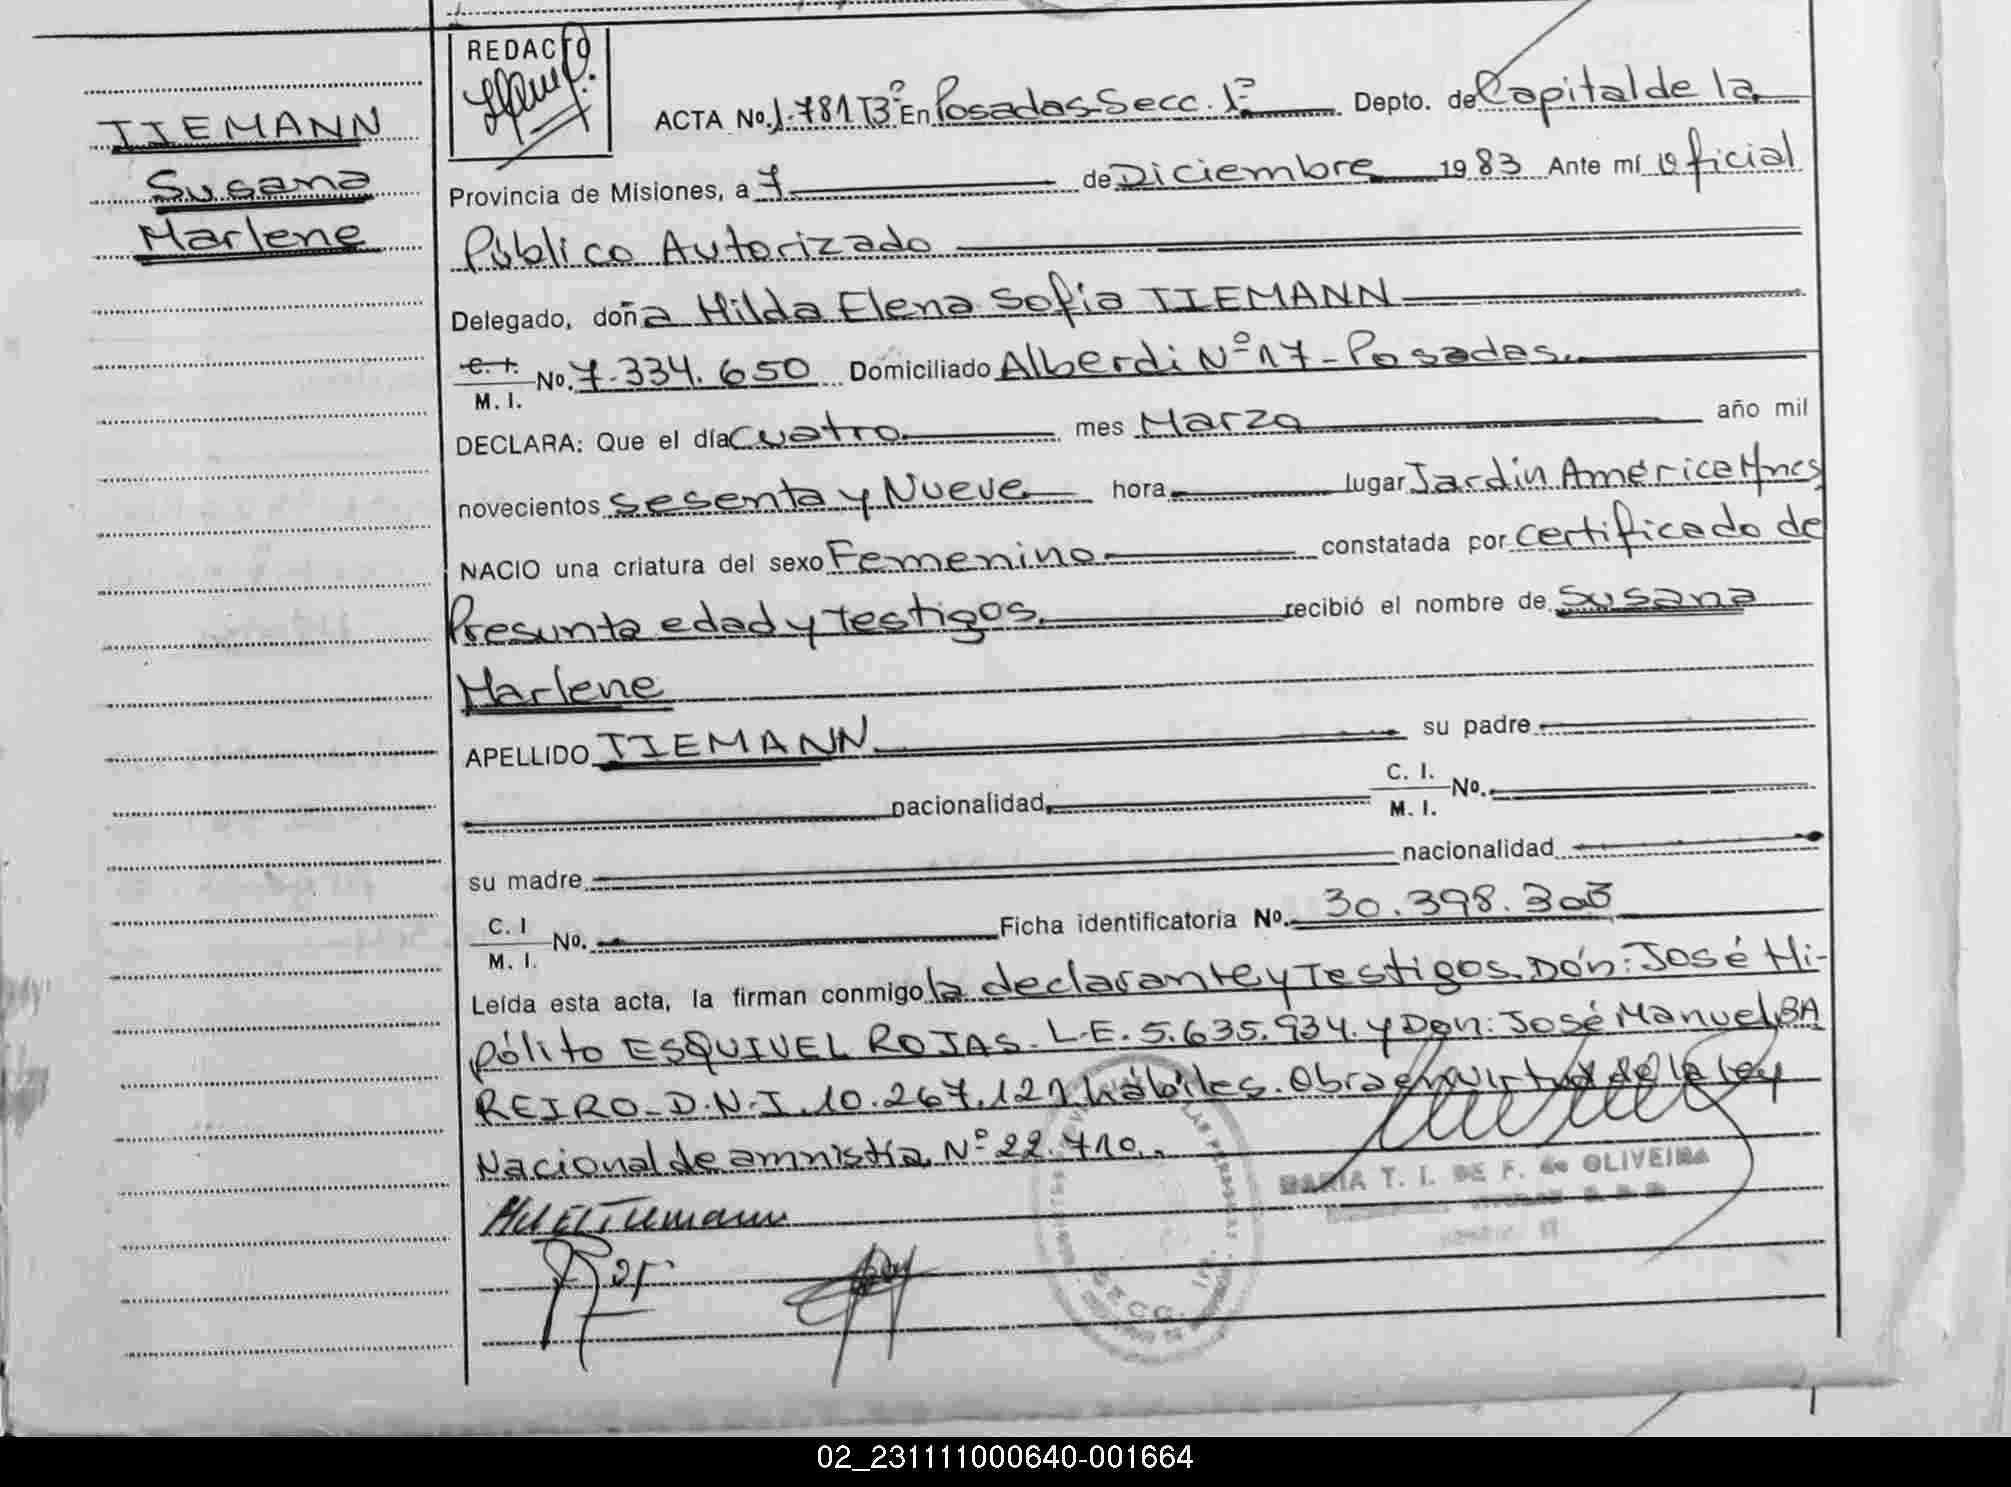 TIEMANN
Susana
Marlene
REDACTO
ACTA No. 1.781 T3º En Posadas Secc. 1ª Depto. de Capital de la
Provincia de Misiones, a 7 de Diciembre 1983 Ante mí Oficial
Público Autorizado
Delegado, doña Hilda Elena Sofia TIEMANN
C. I.
M. I. No. 7.334.650 Domiciliado Alberdi Nº 17 - Posadas.
DECLARA: Que el día cuatro mes Marzo año mil
novecientos sesenta y Nueve hora lugar Jardín América Mnes
NACIO una criatura del sexo Femenino constatada por certificado de
Presunta edad y Testigos. recibió el nombre de Susana
Marlene
APELLIDO TIEMANN su padre
nacionalidad C. I.
M. I. No.
su madre nacionalidad
C. I
M. I. No. Ficha identificatoria No. 30.398.303
Leída esta acta, la firman conmigo la declarante y Testigos. Dón: José Hi-
pólito ESQUIVEL ROJAS. L.E. 5.635.934. y Don: José Manuel BA
REIRO - D.N.I. 10.267.121 hábiles. Obra en virtud de la Ley
Nacional de amnistía Nº 22.710.
MARIA T. I. DE F. de OLIVEIRA
SECC.
02_231111000640-001664